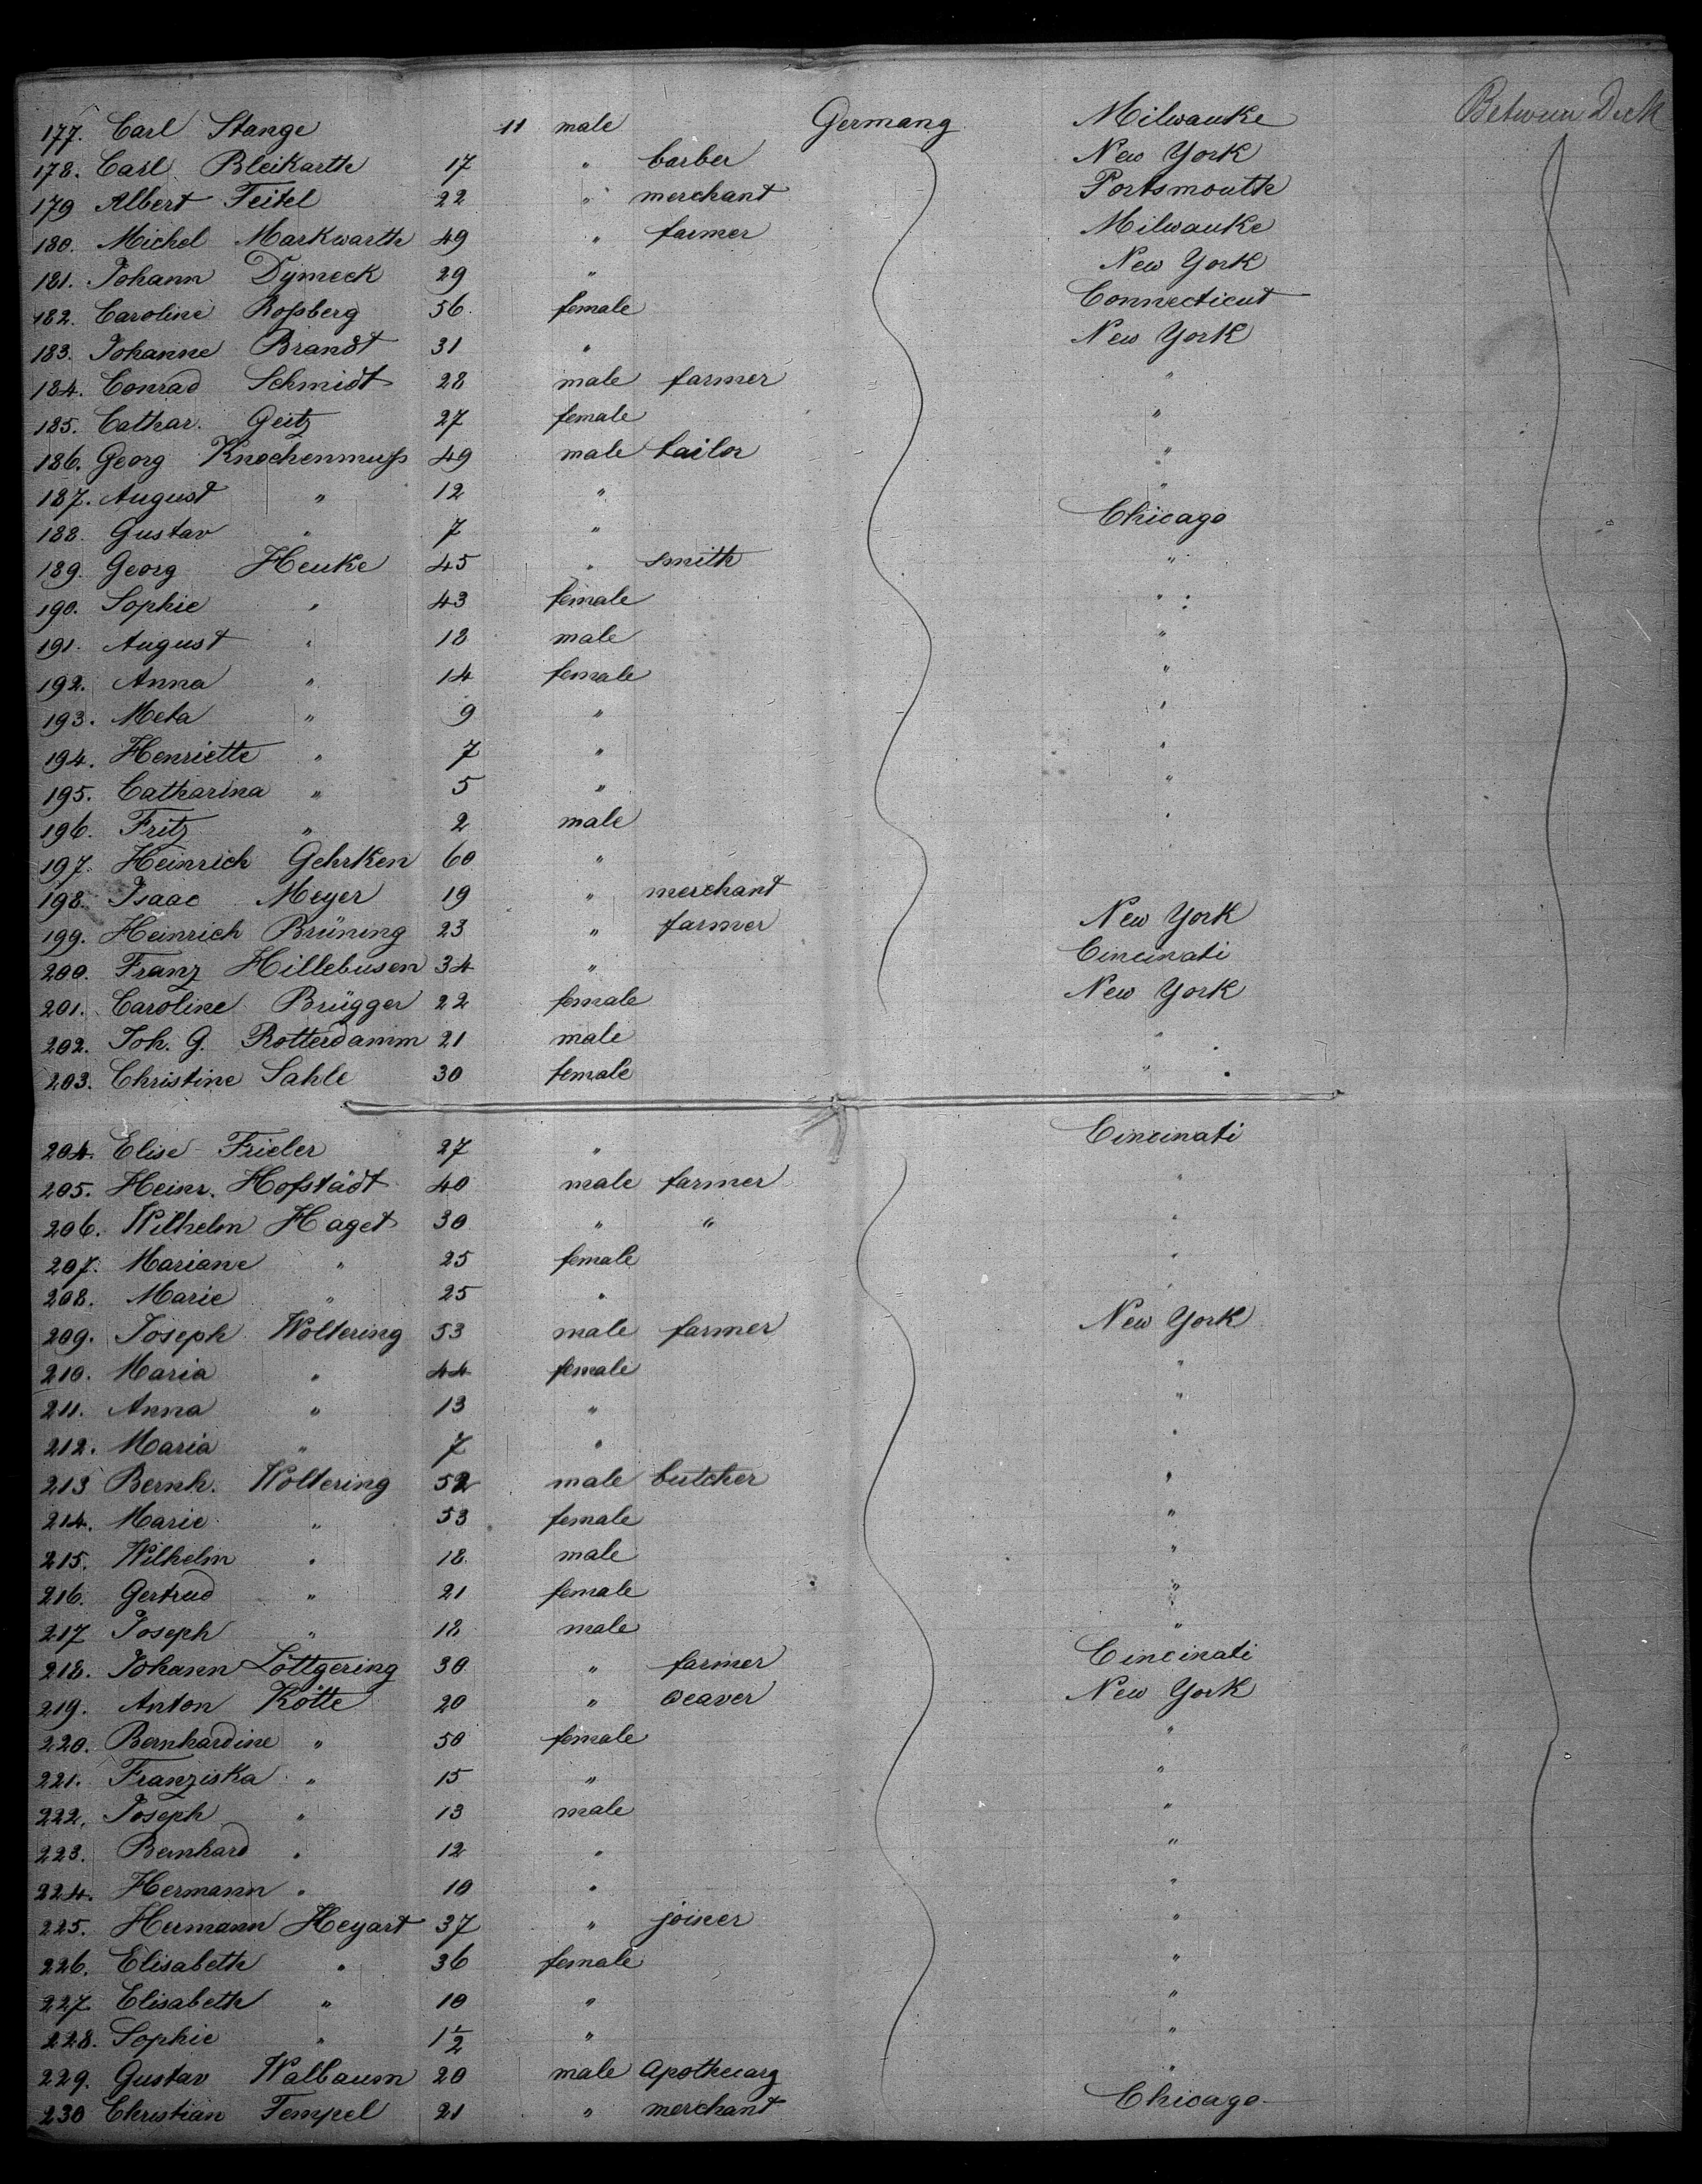 177. Carl Stange 11 male Germany Milwauke Between Deck
178. Carl Bleikarth 17 " barber New York
179 Albert Feitel 22 " merchant Portsmouth
180. Michel Markwarth 49 " farmer Milwauke
181. Johann Dymeck 29 " New York
182. Caroline Roßberg 56 female Connecticut
183. Johanne Brandt 31 " New York
184. Conrad Schmidt 28 male farmer "
185. Cathar. Geitz 27 female "
186. Georg Knochenmuß 49 male tailor "
187. August " 12 " "
188. Gustav " 7 " Chicago
189. Georg Henke 45 " smith "
190. Sophie " 43 female "
191. August " 18 male "
192. Anna " 14 female "
193. Meta " 9 " "
194. Henriette " 7 " "
195. Catharina " 5 " "
196. Fritz " 2 male "
197. Heinrich Gehrken 60 "
198. Isaac Meyer 19 " merchant
199. Heinrich Brüning 23 " farmer New York
200. Franz Hillebusen 34 " Cincinati
201. Caroline Brügger 22 female New York
202. Joh. G. Rotterdamm 21 male "
203. Christine Sahle 30 female "
204. Elise Frieler 27 " Cincinati
205. Heinr. Hofstädt 40 male farmer "
206. Wilhelm Haget 30 " " "
207. Mariane " 25 female "
208. Marie " 25 " "
209. Joseph Woltering 53 male farmer New York
210. Maria " 44 female "
211. Anna " 13 " "
212. Maria " 7 " "
213 Bernh. Woltering 52 male butcher "
214. Marie " 53 female "
215. Wilhelm " 18 male "
216. Gertrud " 21 female "
217 Joseph " 18 male "
218. Johann Löttgering 30 " farmer Cincinati
219. Anton Kötte 20 " weaver New York
220. Bernhardine " 50 female "
221. Franziska " 15 " "
222. Joseph " 13 male "
223. Bernhard " 12 " "
224. Hermann " 10 " "
225. Hermann Heyart 37 " joiner "
226. Elisabeth " 36 female "
227. Elisabeth " 10 " "
228. Sophie " 1½ " "
229. Gustav Walbaum 20 male Apothecary "
230 Christian Tempel 21 " merchant Chicago